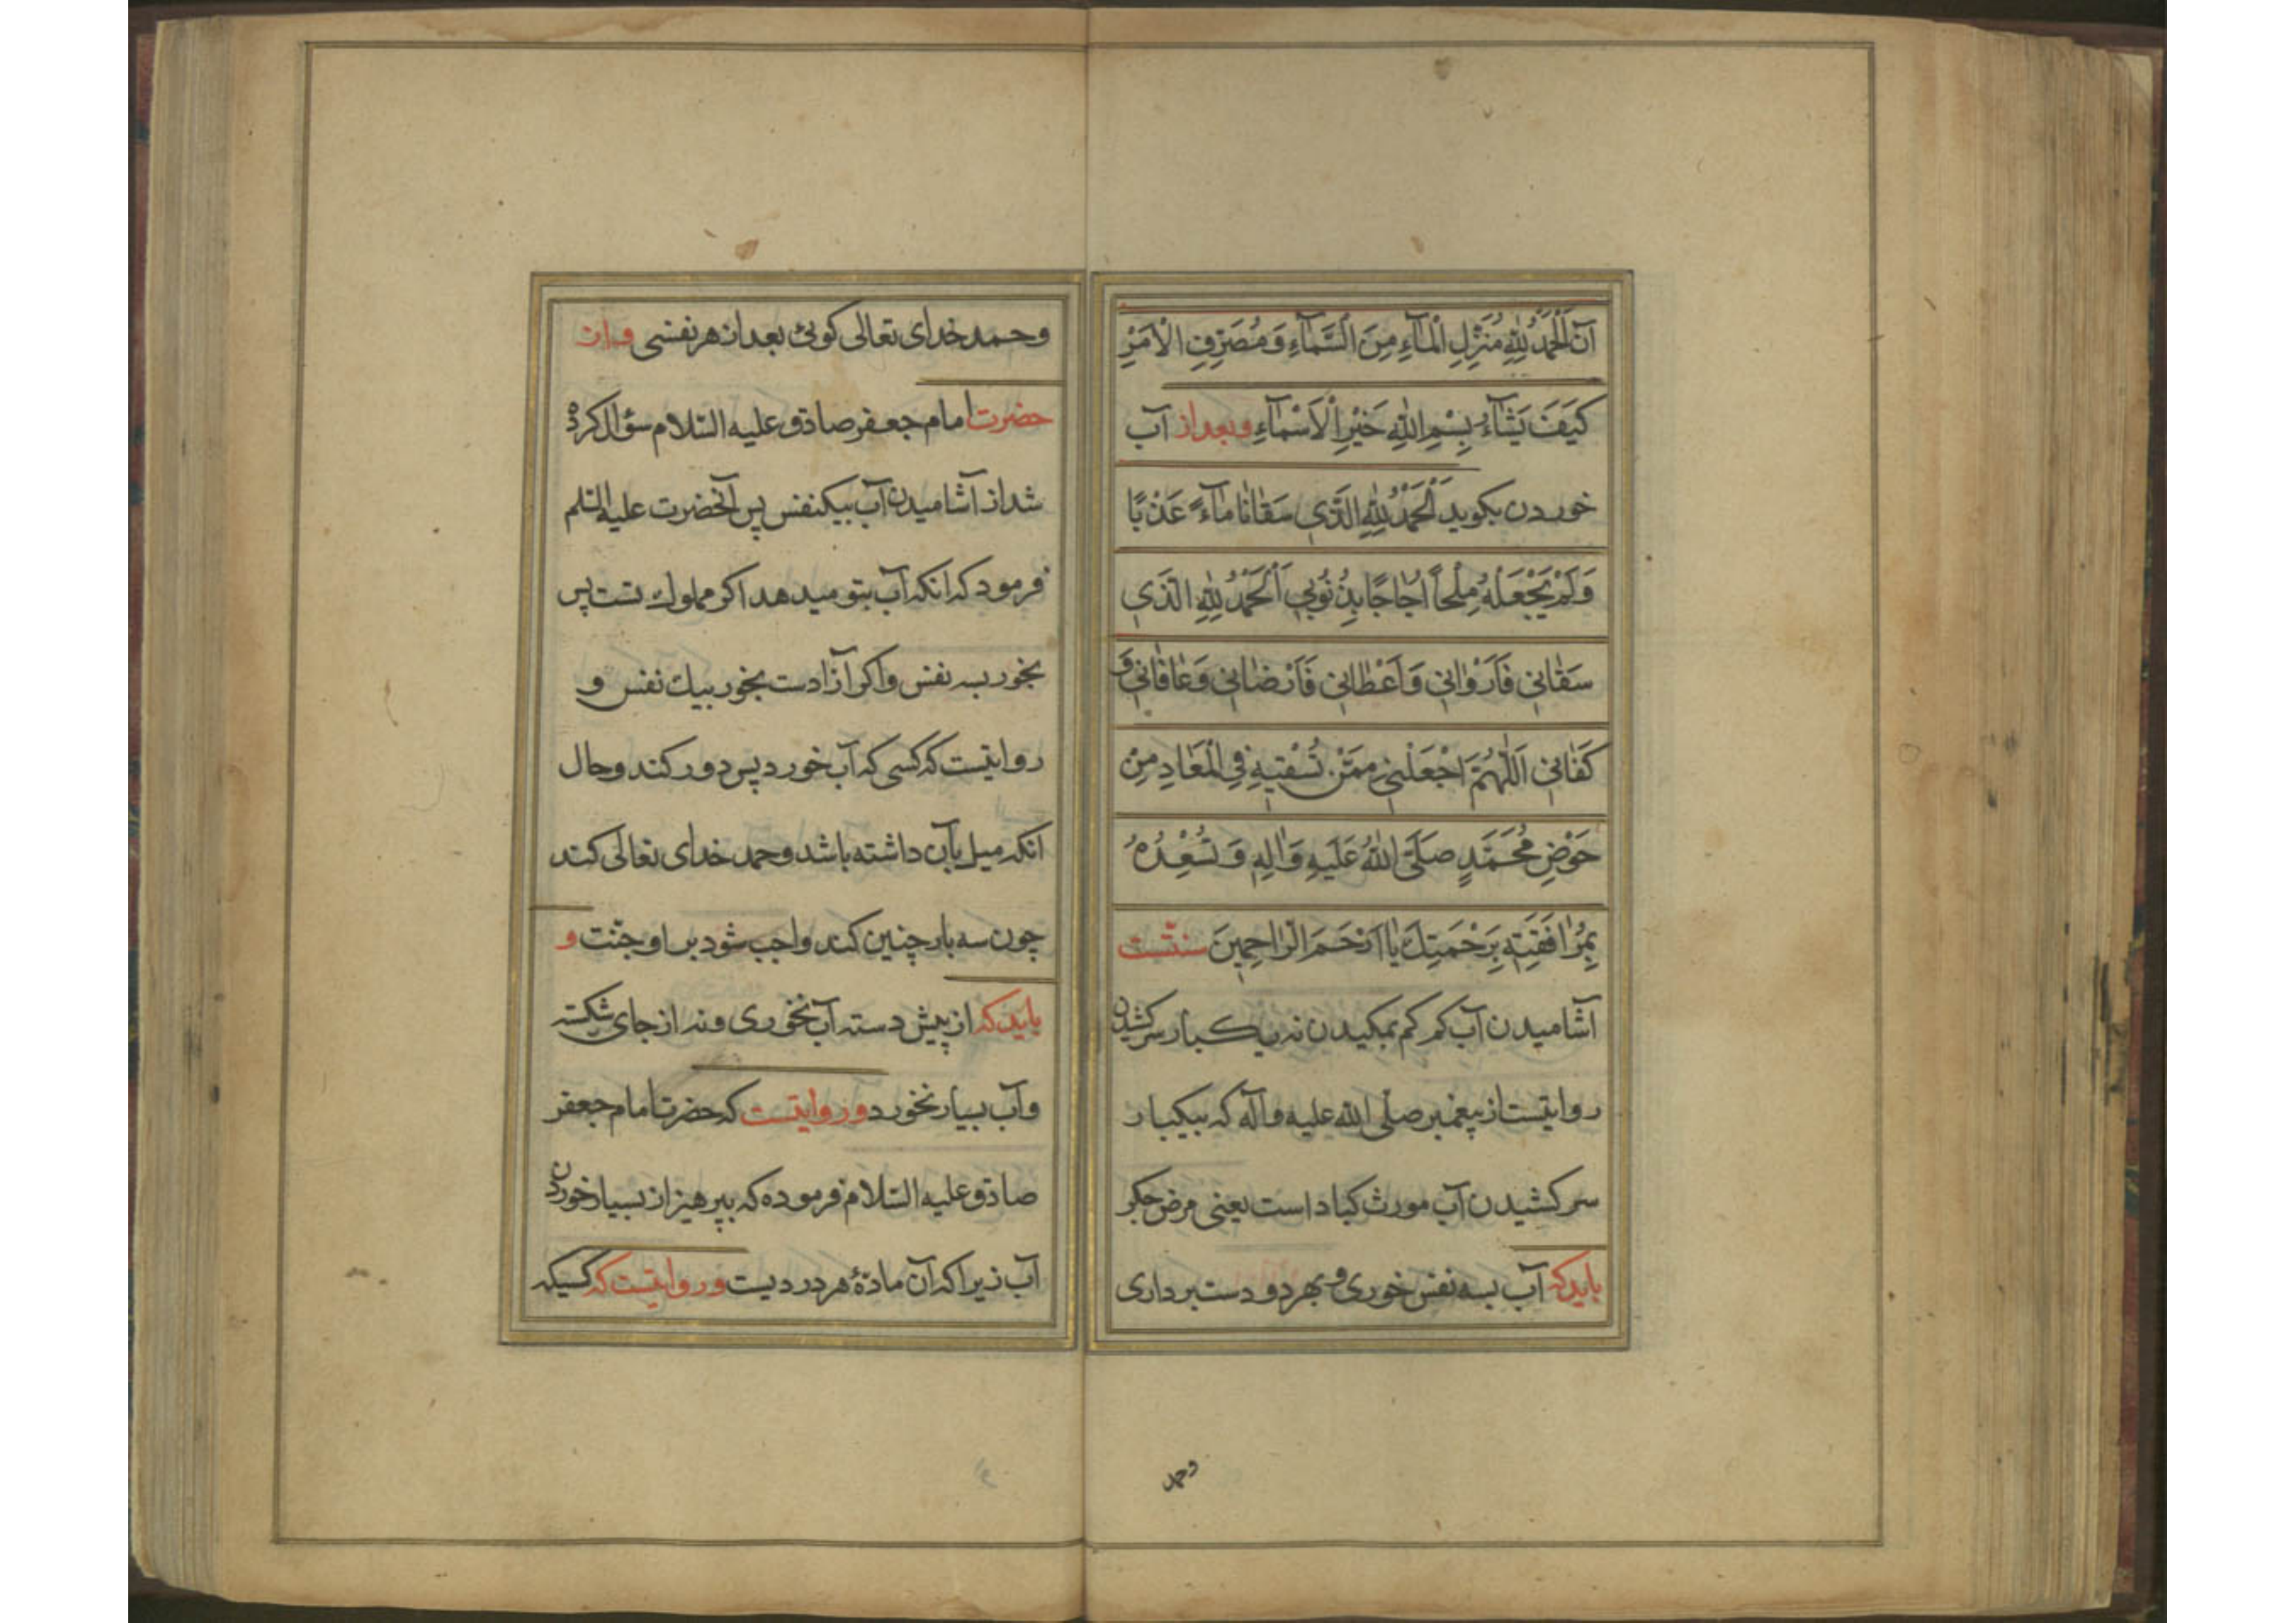 آن اَلْحَمْدُ لِلّٰهِ مُنَزِّلِ الْمَآءِ مِنَ السَّمَآءِ وَمُصَرِّفِ الْاَمْرِ
كَيَفَ يَشَآءُ بِسْمِ اللّٰهِ خَيْرِ الْاَسْمَآءِ وبعد از آب
خوردن بكويد اَلْحَمْدُ لِلّٰهِ الَّذي سَقٰانٰا مٰآءً عَذْبًا
وَلَمْ يَجْعَلْهُ مِلْحاً اُجٰاجًا بِذُنُوبي اَلْحَمْدُ لِلّٰهِ الَّذي
سَقٰاني فَاَرْوٰاني وَاَعْطٰاني فَاَرْضٰاني وَعٰافٰاني وَ
كَفٰاني اَللّٰهُمَّ اجْعَلْني مِمَّنْ تُسْقيهِ فِي الْمَعٰادِ مِنْ
حَوْضِ مُحَمَّدٍ صَلَّى اللّٰهُ عَلَيهِ وَاٰلِهِ وَتُسْعِدُهُ
بِمُرٰافَقَتِهِ بِرَحْمَتِكَ يٰا اَرْحَمَ الرّٰاحِمِينَ سنتّست
آشاميدن آب كم كم بمكيدن نه يكبار سركشيدن
روايتست از پيغمبر صلّى الله عليه وآله كه بيكبار
سركشيدن آب مورث كباد است يعنى مرض جكر
بايد كه آب بسه نفس خورى و بهر دو دست بردارى
وحمد
وحمد خداى تعالى كوئى بعد از هر نفسى و از
حضرت امام جعفر صادق عليه السّلام سؤال كرده
شد از آشاميدن آب بيكنفس پس آنحضرت عليه السلم
فرمود كه انكه آب بتو ميدهد اكر مملوك تست پس
بخور بسه نفس واكر آزادست بخور بيك نفس و
روايتست كه كسى كه آب خورد پس دور كند وحال
انكه ميل بآب داشته باشد وحمد خداى تعالى كند
چون سه بار چنين كند واجب شود بر او جنّت و
بايد كه از پيش دسته آب نخورى ونه از جاى شكسته
وآب بسيار نخورد و روايتست كه حضرت امام جعفر
صادق عليه السّلام فرموده كه بپرهيز از بسيار خوردن
آب زيرا كه آن مادّهٔ هر درديست و روايتست كه كسيكه